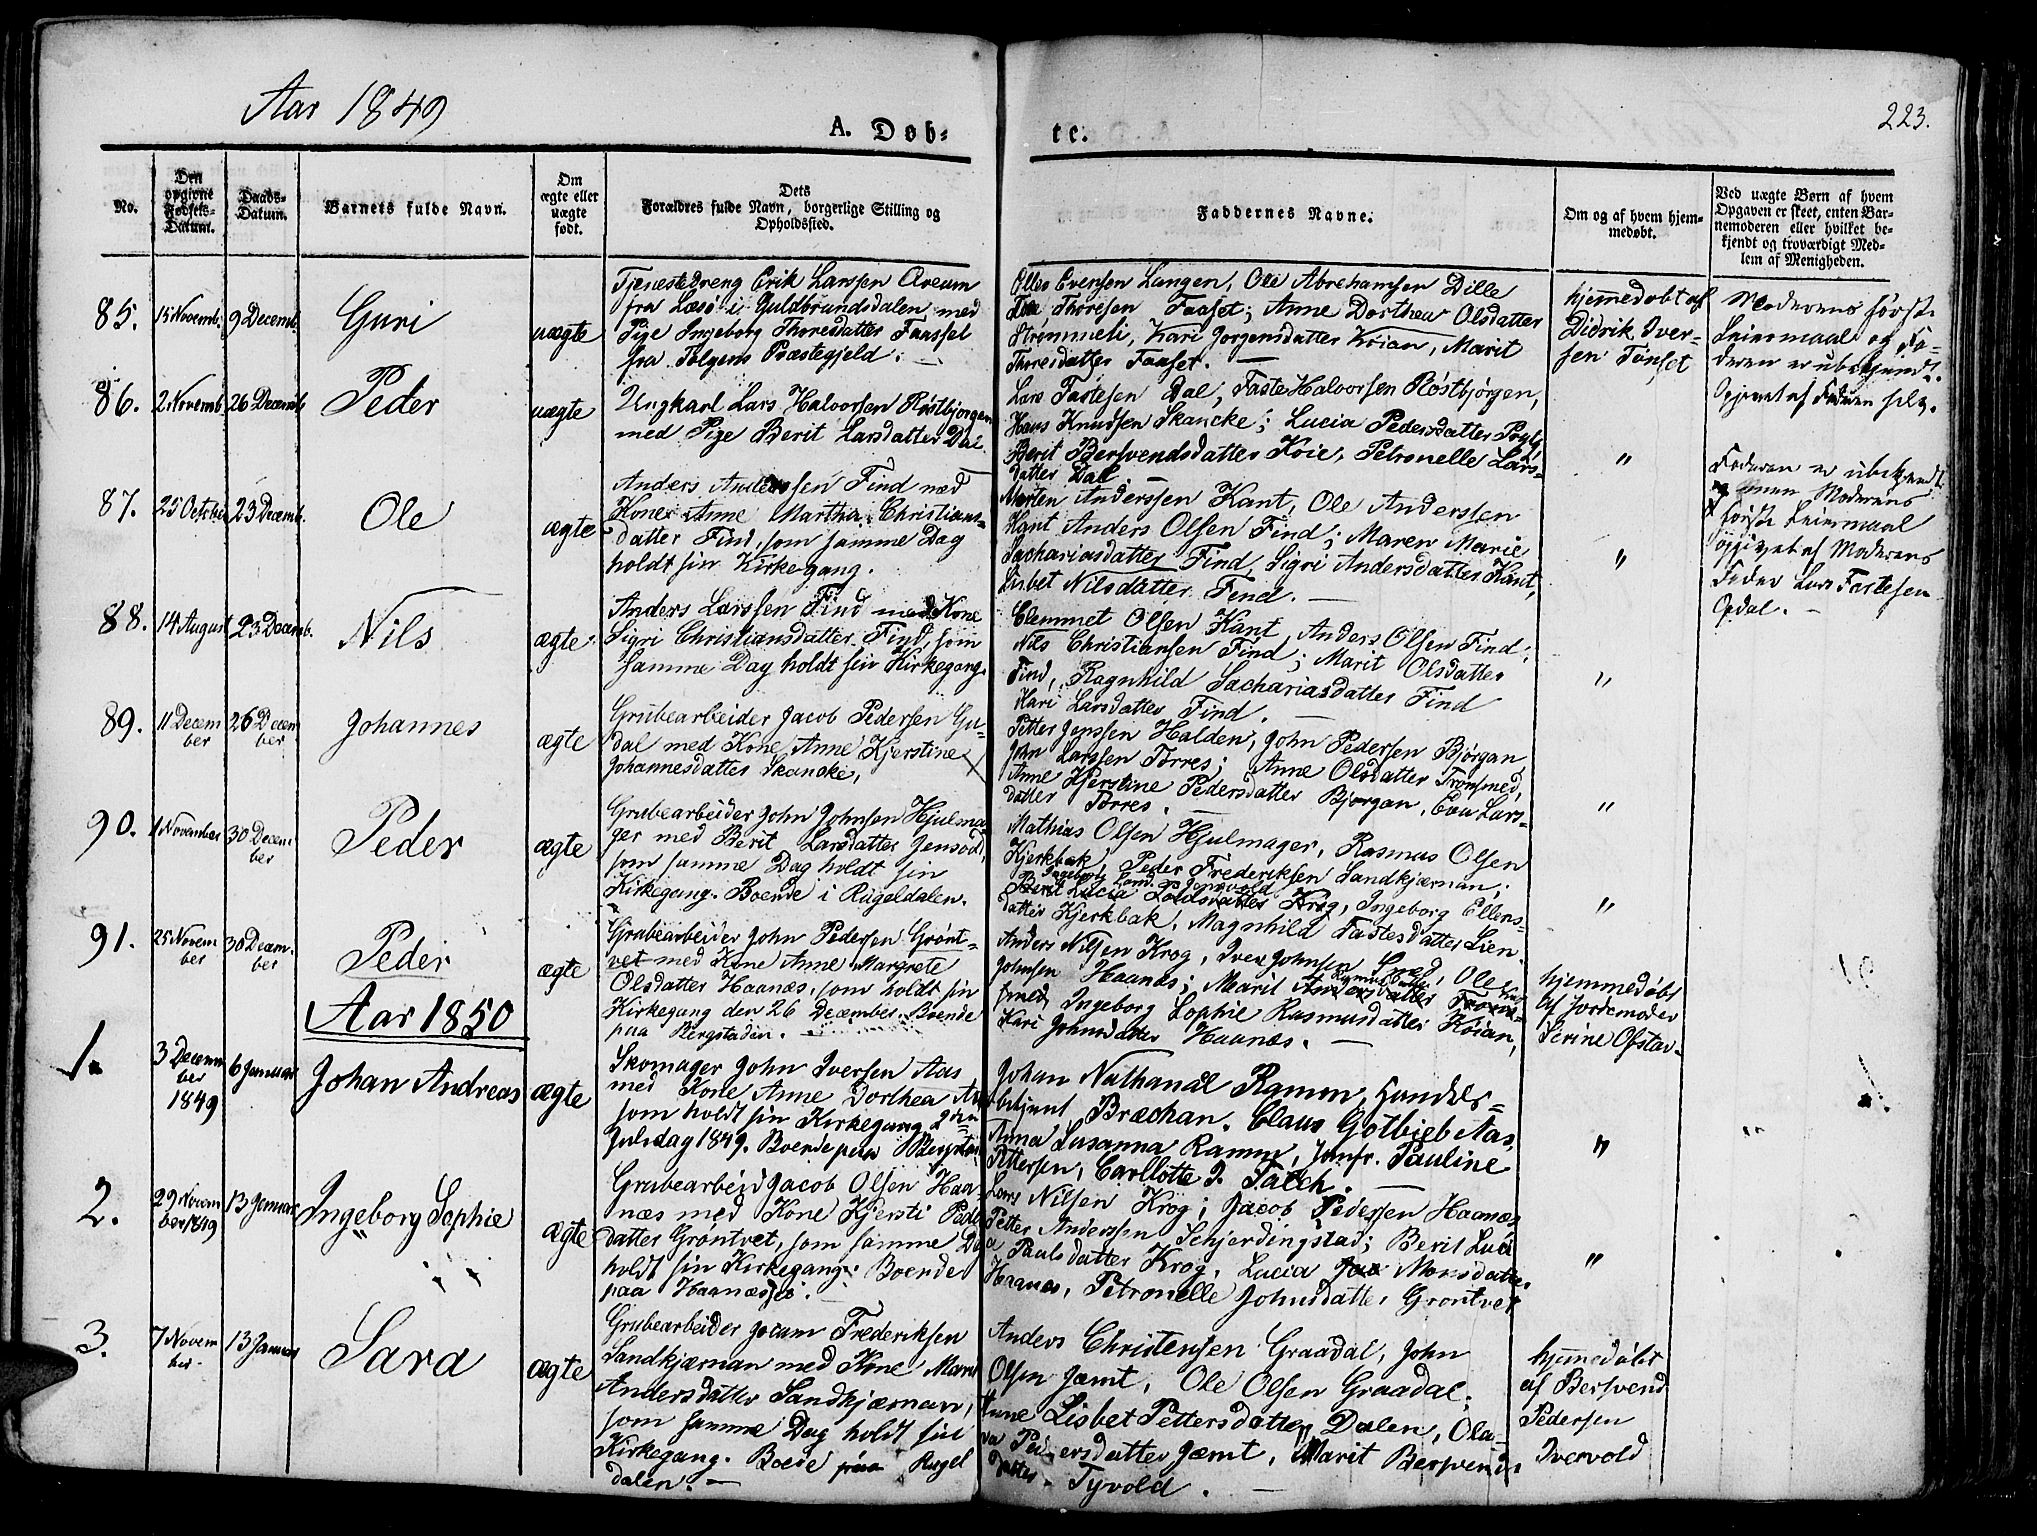 Aar 1849
A. Døb-
te.
223.
No.
Den
opgivne
Fødsels-
Datum.
Daabs-
Datum.
Barnets fulde Navn.
Om
ægte eller
uægte
født.
Dets
Forældres fulde Navn, borgerlige Stilling og
Opholdssted.
Faddernes Navne.
Om og af hvem hjem-
medøbt.
Ved uægte Børn af hvem
Opgaven er skeet, enten Bar-
nemoderen eller hvilket be-
kjendt og troværdigt Med-
lem af Menigheden.
85.
15 Novemb.
9 Decemb.
Guri
uægte
Tjenestedreng Erik Larssen
fra Læsø i Guldbrandsdalen med
Pige Ingeborg Thoresdatter Faaset
fra Tolgens Præstegjeld.
Iversen Langen, Ole Abrahamsen Dille
Thoresen Faaset; Anne Dorthea Olsdatter
Strømmeli, Kari Jorgensdatter Koian, Marit
Thoresdatter Faaset.
hjemmedøbt af
Didrik Iver-
sen Tønset
Moderens første
Leiermaal og Fa-
deren er ubekjendt.
Opgivet af Faderen selv.
86.
2 Novemb.
26 Decemb.
Peder
uægte
Ungkarl Lars Halvorsen Røstbjørgen
med Pige Berit Larsdatter Dal
Lars Fastesen Dal, Faste Halvorsen Røstbjørgen,
Hans Knudsen Skancke; Lucia Pedersdatter
Berit Bersvendsdatter Koie, Petronelle Lars-
datter Dal
"
Faderen er ubekjendt
men Moderens
første Leiermaal
opgivet af Moderens
Fader Lars Fastesen
Opdal.
87.
25 October
23 Decemb.
Ole
ægte
Anders Anderssen Find med
Kone Anne Martha Christians-
datter Find, som samme Dag
holdt sin Kirkegang.
Morten Anderssen Kant, Ole Anderssen
Kant Anders Olsen Find; Maren Marie
Sachariasdatter Find, Sigri Andersdatter Kant,
Lisbet Nilsdatter Find.
"
88.
14 August
23 Decemb.
Nils
ægte
Anders Larssen Find med Kone
Sigri Christiansdatter Find, som
samme Dag holdt sin Kirkegang.
Clemmet Olsen Kant, Anders Olsen Find,
Nils Christiansen Find; Marit Olsdatter
Find, Ragnhild Sachariasdatter Find
Kari Larsdatter Find.
"
89.
11 Decem
ber
26 Decem
ber
Johannes
ægte
Grubearbeider Jacob Pedersen Gu-
dal med Kone Anne Kjerstine
Johannesdatter Skancke,
Petter Jenssen Halden, John Pedersen Bjørgan,
John Larssen Torres; Anne Olsdatter Tronsmed,
Anne Kjerstine Pedersdatter Bjørgan, Eva Lars-
datter Torres.
"
90.
1 November
30 Decem
ber
Peder
ægte
Grubearbeider John Johnsen Hjulma-
ger med Berit Larsdatter Jensvold,
som samme Dag holdt sin
Kirkegang. Boende i Rugeldalen.
Mathias Olsen Hjulmager, Rasmus Olsen
Kjerkbak, Peder Frederiksen Sandkjærnan;
Berit Lucia Krog, Ingeborg Ellens-
datter Kjerkbak, Magnhild Fastesdatter Lien.
"
91.
25 Novem
ber
30 Decem.
ber
Peder
ægte
Grubearbeider John Pedersen Grønt-
vet med Kone Anne Margrete
Olsdatter Haanæs, som holdt sin
Kirkegang den 26 December. Boende
paa Bergstaden.
Anders Nilsen Krog, Iver Johnsen Ole
Johnsen Haanæs; Marit
Ingeborg Sophie Rasmusdatter Køian,
Kari Johnsdatter Haanæs.
hjemmedøbt
af Jordemoder
Serine Ofstav-
Aar 1850
1.
3 Decem
ber
1849
6 Januar
Johan Andreas
ægte
Skomager John Iversen Aas
med Kone Anne Dorthea
som holdt sin Kirkegang 2den
Juledag 1849. Boende paa
Johan Nathanal Ramm, Handels-
betjent Bræchan. Claus Gotlieb Aas
Anna Susanna Ramm, Jomfr. Pauline
Pettersen, Carllotte J. Falch.
"
2.
29 Novem
ber 1849
13 Januar
Ingeborg Sophie
ægte
Grubearbeid Jacob Olsen Haa-
næs med Kone Kjersti
datter Grøntvet, som samme
holdt sin Kirkegang. Boende
paa
Lars Nilsen Krog; Jacob Pedersen Haanæs
Petter Anderssen Schjerdingstad; Berit Luci
a Paulsdatter Krog, Lucia Monsdatter
Haanæs, Petronelle Johnsdatter Grøntvet
"
3.
7 Novem
ber
13 Januar
Sara
ægte
Grubearbeider Jocum Frederiksen
Sandkjærnan med Kone
Andersdatter Sandkjærnan,
som samme Dag holdt sin
Kirkegang. Boede paa Rugel
dalen.
Anders Christensen Graadal, John
Olsen Jæmt, Ole Olsen Graadal.
Anne Lisbet Pettersdatter Dalen, Ola-
va Pedersdatter Jæmt, Marit Bersvends
datter Tyvold.
hjemmedøbt
af Bersvend
Pedersen
Ivervold